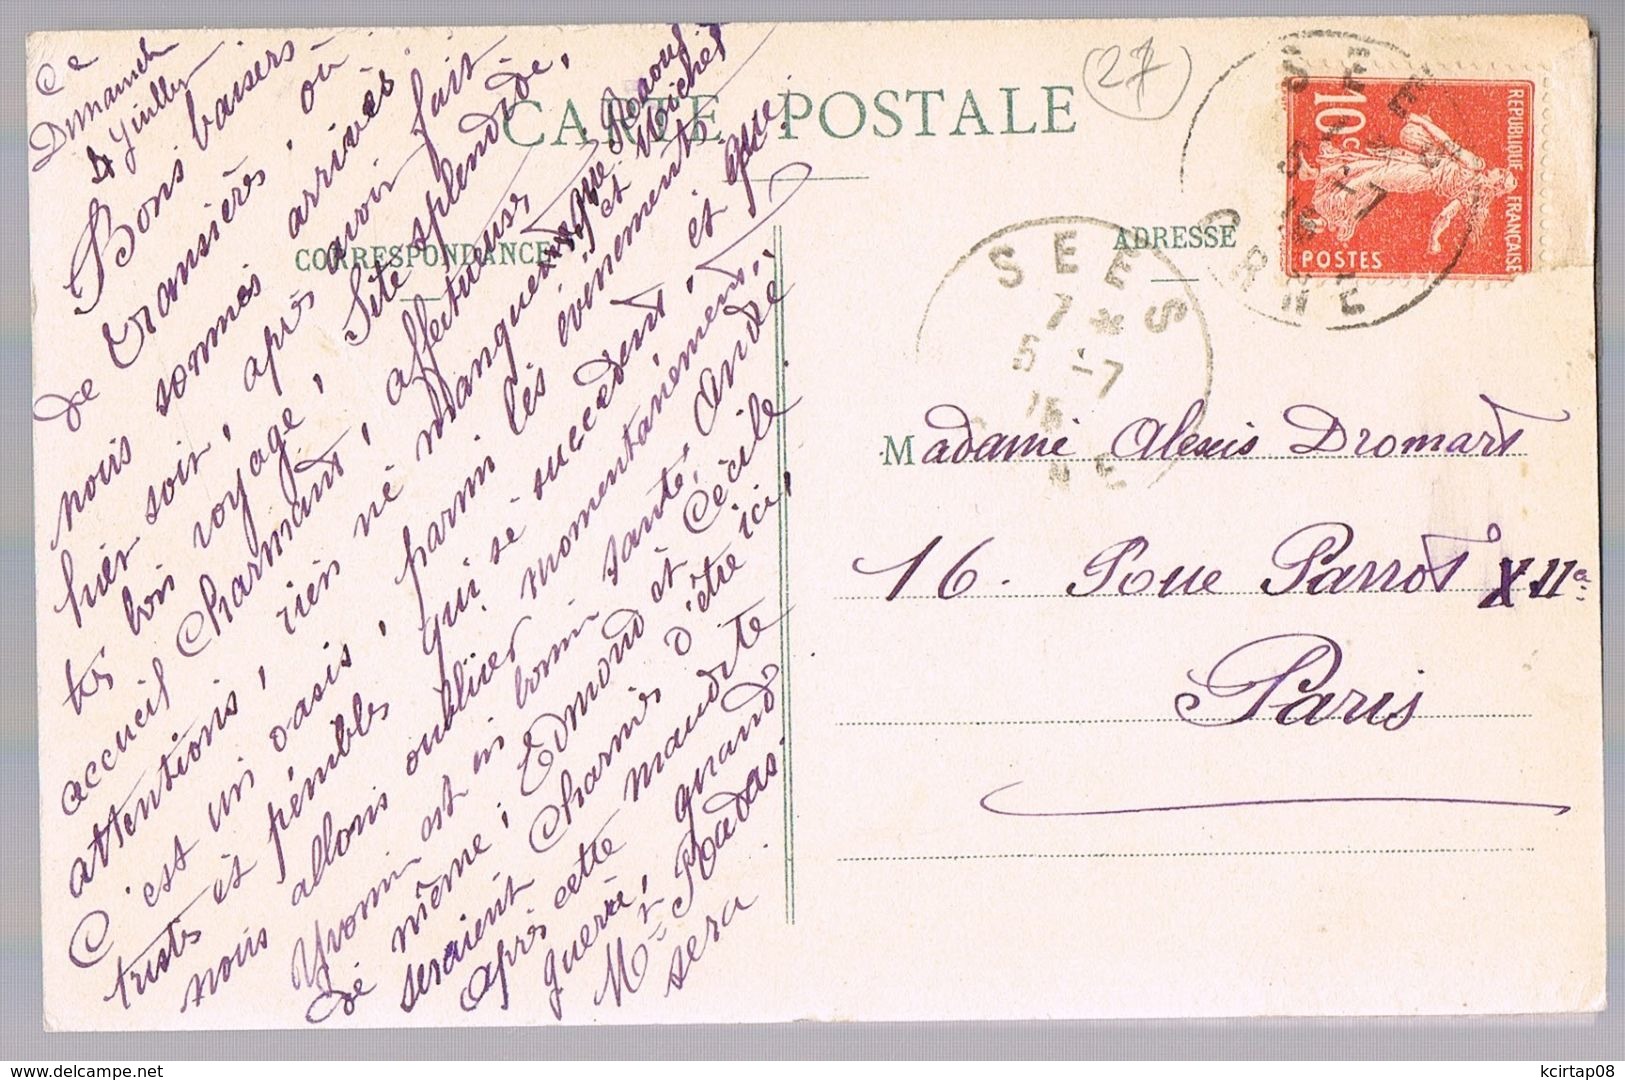 Ce
Dimanche
4 Juillet
Bons baisers
de Transières, où
nous sommes arrivés
hier soir, après avoir fait
très bon voyage, Site splendide,
accueil charmant, affectueuses
attentions, rien ne manquerait que Raoul
C'est un oasis, parmi les événements et Michel
tristes et pénibles qui se succèdent, et que
nous allons oublier momentanément.
Yvonne est en bonne santé, André
de même, Edmond et Cécile
seraient charmés d'être ici,
après cette maudite
guerre, quand
Mr Radas
sera.
CARTE POSTALE
27
CORRESPONDANCE
ADRESSE
REPUBLIQUE FRANÇAISE
10c
POSTES
SEES
5 -7
15
ORNE
SEES
7 *
5 -7
15
NE
Madame Alexis Dromart
16. Rue Parrot XIIe
Paris
https://www.delcampe.net
kcirtap08